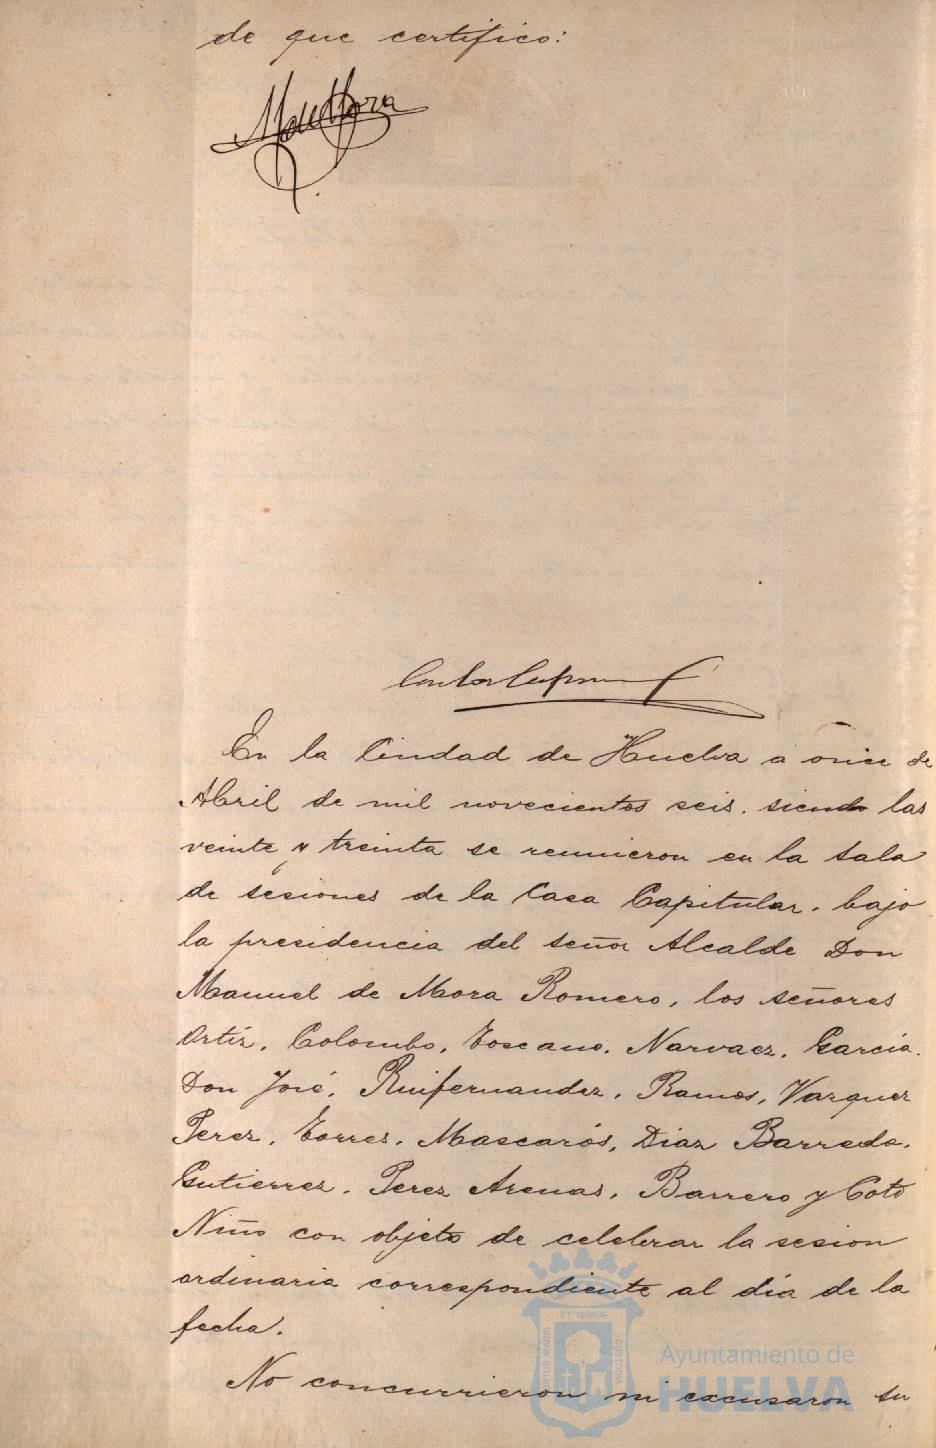 de que certifico:
En la Ciudad de Huelva a once de
Abril de mil novecientos seis. siendo las
veinte y treinta se reunieron en la sala
de sesiones de la Casa Capitular. bajo
la presidencia del señor Alcalde Don
Manuel de Mora Romero, los señores
Ortiz. Colombo. Toscano. Narvaez. Garcia.
Don José. Ruifernandez. Ramos. Vazquez
Perez. Torres. Mascarós. Diaz Barreda.
Gutierrez. Perez Arenas. Barrero y Coto
Niño con objeto de celebrar la sesion
ordinaria correspondiente al día de la
fecha.
No concurrieron ni excusaron su
Ayuntamiento de
HUELVA